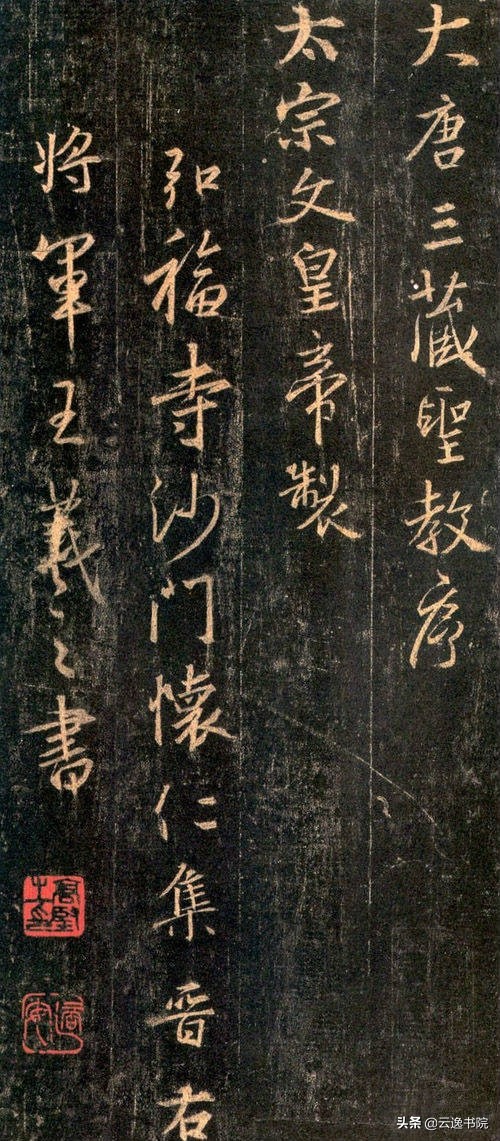 大唐三藏聖教序
太宗文皇帝製
弘福寺沙門懷仁集晋右
將軍王羲之書
头条 @云逸书院